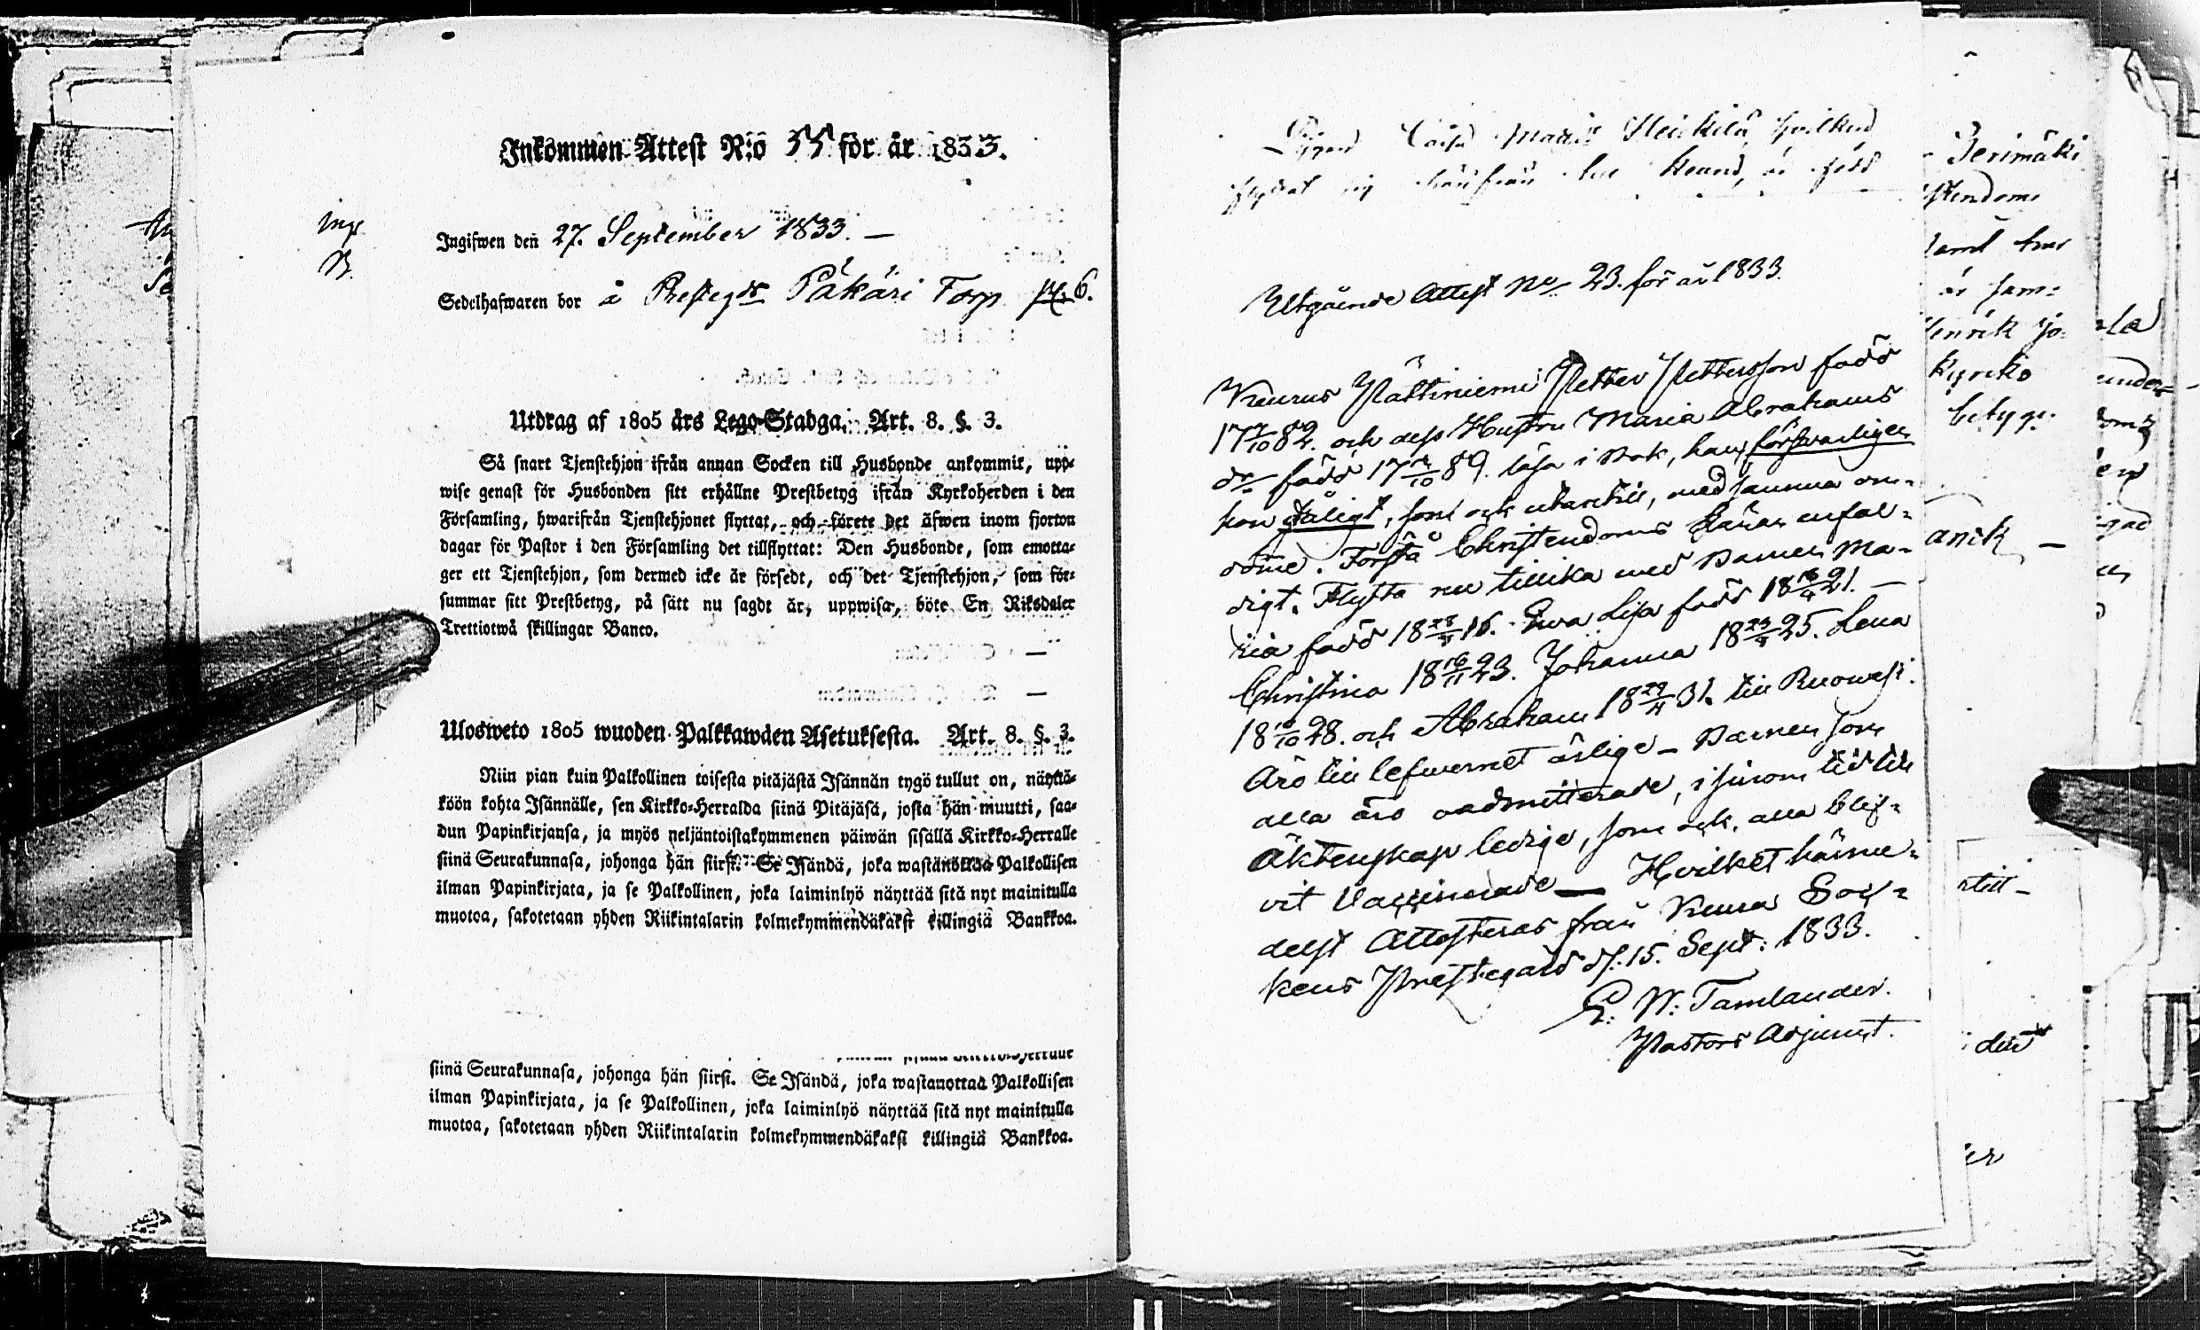 Inkommen Attest N:o 55 för år 1833.
Ingifwen den 27. September 1833. —
Sedelhafwaren bor å Prestegds Päkäri Torp pag. 6.
Utdrag af 1805 års Lego-Stadga. Art. 8. §. 3.
Så snart Tjenstehjon ifrån annan Socken till Husbonde ankommit, upp-
wise genast för Husbonden sitt erhållne Prestbetyg ifrån Kyrkoherden i den
Församling, hwarifrån Tjenstehjonet flyttat, och förete det äfwen inom fjorton
dagar för Pastor i den Församling det tillflyttat: Den Husbonde, som emotta-
ger ett Tjenstehjon, som dermed icke är försedt, och det Tjenstehjon, som för-
summar sitt Prestbetyg, på sätt nu sagdt är, uppwisa, böte En Riksdaler
Trettiotwå skillingar Banco.
Ulosweto 1805 wuoden Palkkawäen Asetuksesta. Art. 8. §. 3.
Niin pian kuin Palkollinen toisesta pitäjästä Isännän tygö tullut on, näyttä-
köön kohta Isännälle, sen Kirkko-Herralda siinä Pitäjäsä, josta hän muutti, saa-
dun Papinkirjansa, ja myös neljäntoistakymmenen päiwän sisällä Kirkko-Herralle
siinä Seurakunnasa, johonga hän siirsi. Se Isändä, joka wastanottaa Palkollisen
ilman Papinkirjata, ja se Palkollinen, joka laiminlyö näyttää sitä nyt mainitulla
muotoa, sakotetaan yhden Riikintalarin kolmekymmendäkaksi killingiä Bankkoa.
siinä Seurakunnasa, johonga hän siirsi. Se Isändä, joka wastanottaa Palkollisen
ilman Papinkirjata, ja se Palkollinen, joka laiminlyö näyttää sitä nyt mainitulla
muotoa, sakotetaan yhden Riikintalarin kolmekymmendäkaksi killingiä Bankkoa.
Pigan Caisa Maria Heickilä hvilken
flyttat sig härifrån är född
Utgående Attest No 23. för år 1833
Keurus Pättiniemi Petter Pettersson född
17 7/10 82. och dess Hustru Maria Abrahams
dr född 17 /10 89. läsa i Bok, han försvarligen
hon dråligt, som och utantill, med samma om-
döme. Förstå Christendoms Läran enfal-
digt. Flytta nu tillika med Barnen Ma-
ria född 18 28/ 16. Ewa Lisa född 18 16/ 21. —
Christina 18 16/11 23. Johanna 18 23/ 25. Lena
18 /10 28. och Abraham 18 29/ 31. till Ruowesi.
Äro till lefwernet ärlige — Barnen som
alla äro oadmitterade, i sinom tid till
Äktenskap ledige, som och alla blif-
vit Vaccinerade — Hvilket härme-
delst Attesteras från Keuru Soc-
kens Prestegård d. 15. Sept: 1833.
G: W: Tamlander.
Pastors Adjunct.